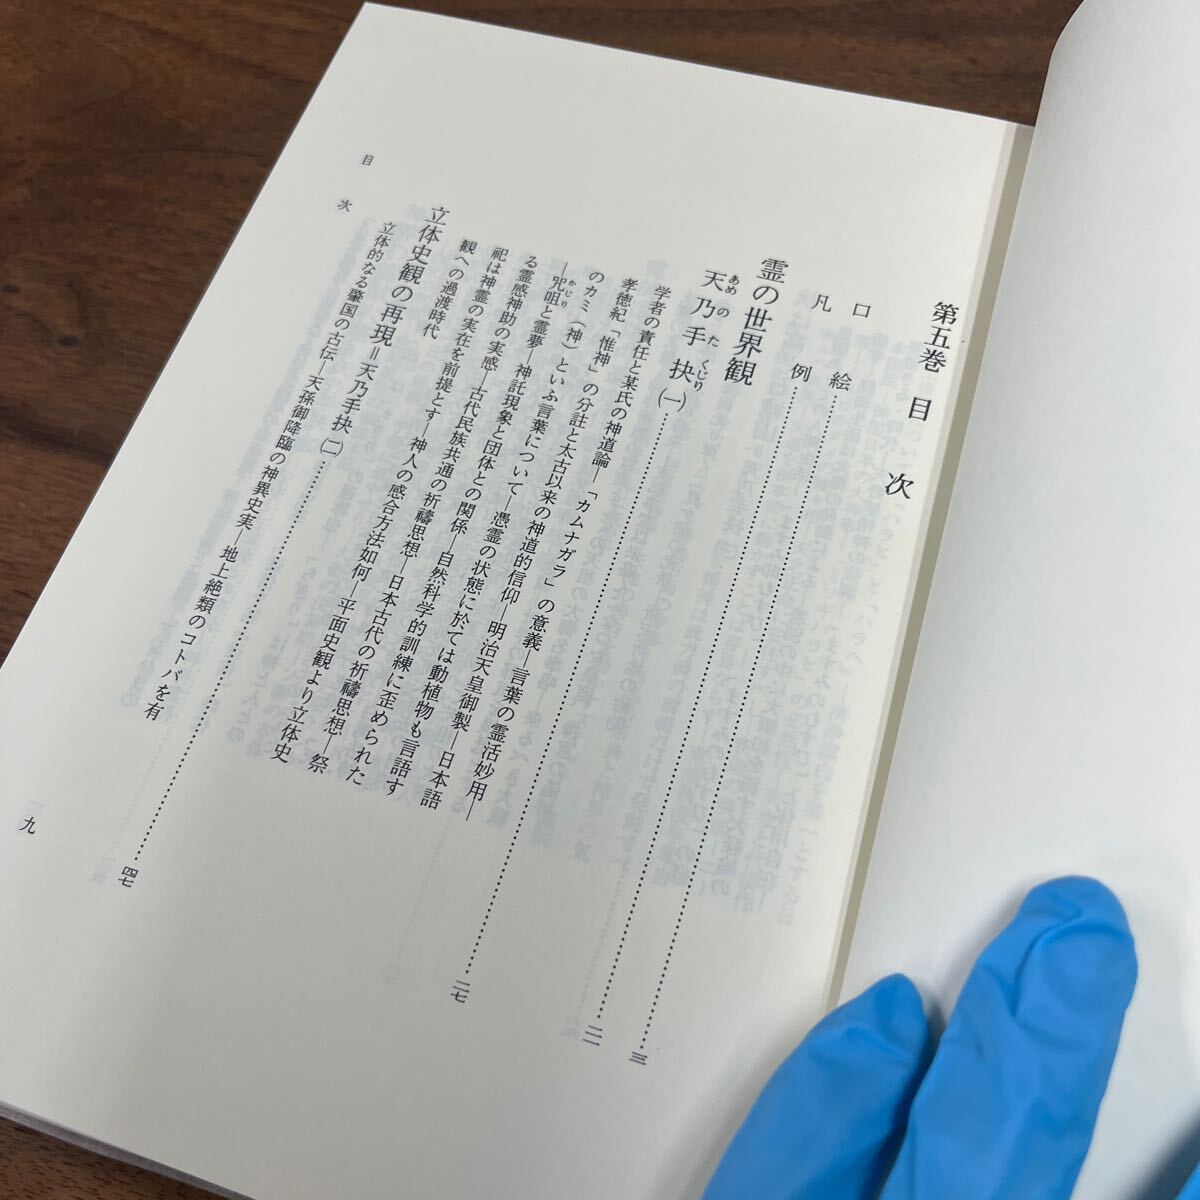 第五巻 目次
口絵……三
凡例……二一
霊の世界観
天乃手抉（一）……二七
あめのたくじり
学者の責任と某氏の神道論―「カムナガラ」の意義―言葉の霊活妙用―
孝徳紀「惟神」の分註と太古以来の神道的信仰―明治天皇御製―日本語
のカミ（神）といふ言葉について―憑霊の状態に於ては動植物も言語す
―咒咀と霊夢―神託現象と団体との関係―自然科学的訓練に歪められた
かじり
る霊感神助の実感―古代民族共通の祈禱思想―日本古代の祈禱思想―祭
祀は神霊の実在を前提とす―神人の感合方法如何―平面史観より立体史
観への過渡時代
立体史観の再現＝天乃手抉（二）……四七
立体的なる肇国の古伝―天孫御降臨の神異史実―地上絶類のコトバを有
目次
一九